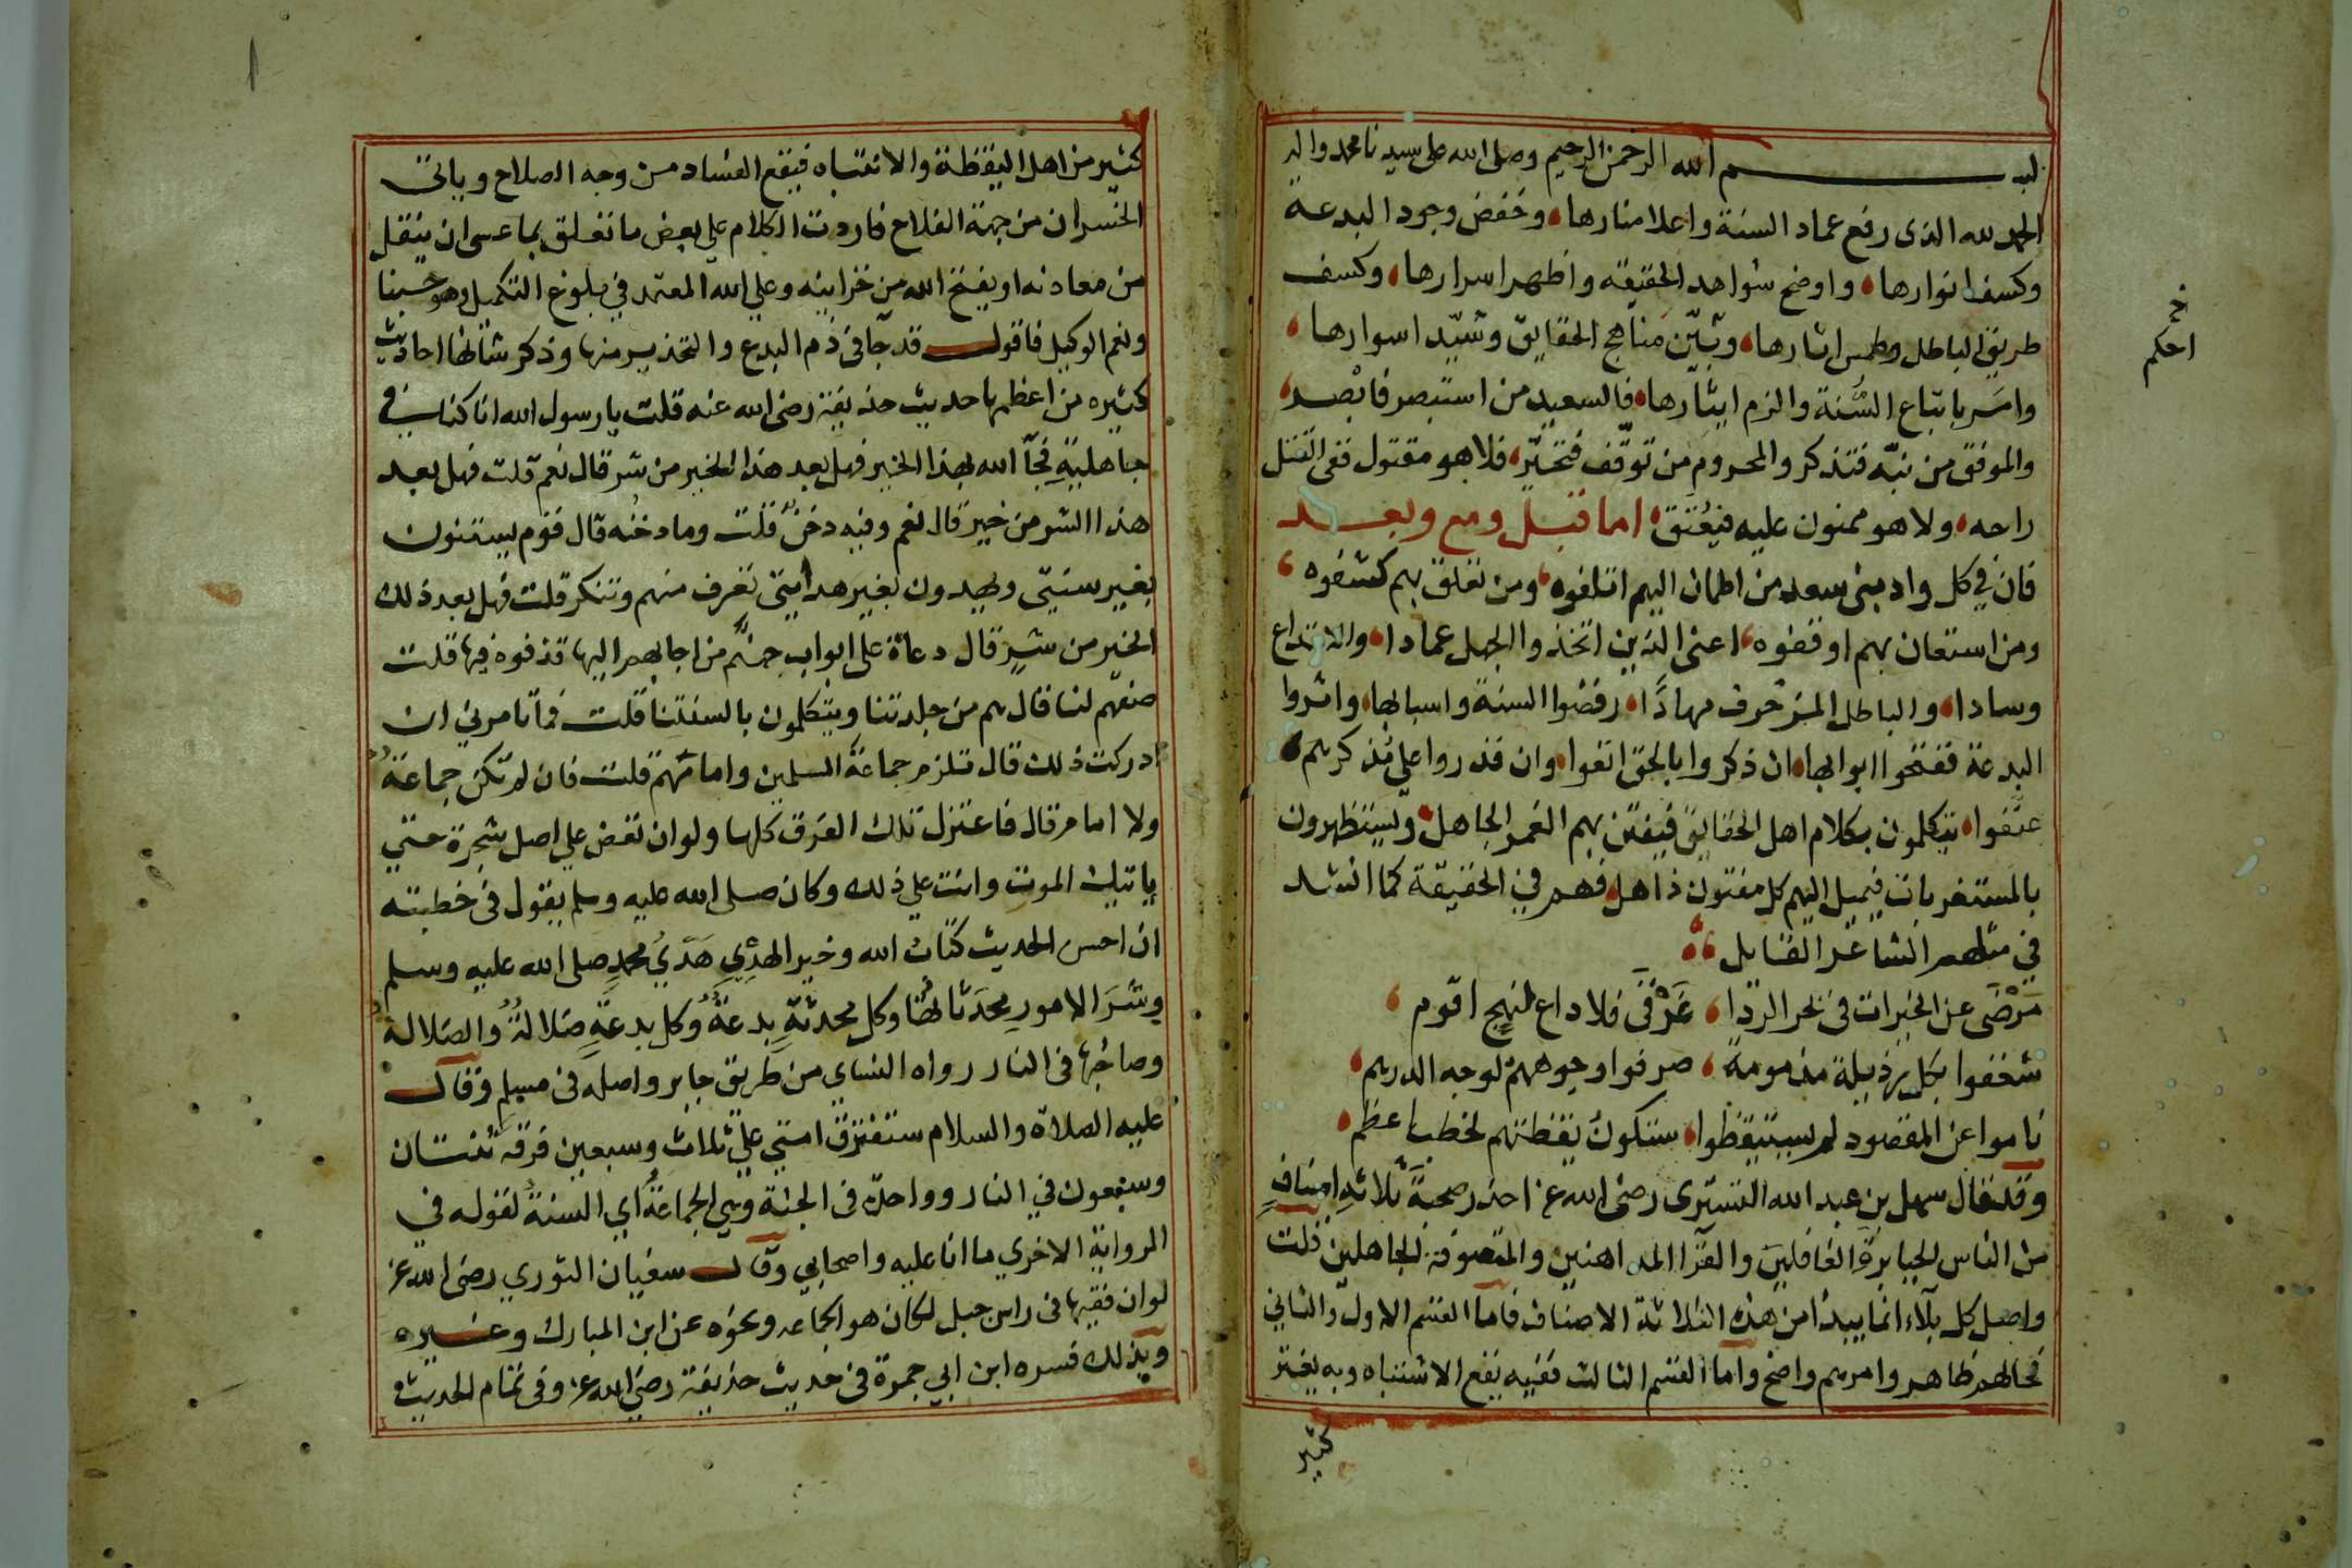 بسم الله الرحمن الرحيم وصلى الله على سيدنا محمد واله
الحمد لله الذى رفع عماد السنة واعلا منارها، وخفض وجود البدعة
وكسف انوارها، واوضح شواهد الحقيقه واظهر اسرارها، وكسف
طريق الباطل وطمس اثارها، وبيّن مناهج الحقايق وشيّد اسوارها،
وامر باتباع السُّنة والزم ايثارها، فالسعيد من استبصر فابْصر،
والموفق من نبّه فتذكر والمحروم من توقّف فتحيّر، فلا هو مقتول ففى القتل
راحه، ولا هو ممنون عليه فيُعْتَق، اما قبل ومع وبعد
فان في كل واد بنى سعد من اطمان اليهم اتلفوه، ومن تعلق بهم كشفوه،
ومن استعان بهم اوقفوه، اعنى الذين اتخذوا الجهل عمادا، والابتداع
وسادا، والباطل المزخرف مهادًا، رفضوا السنة واسبابها، واثروا
البدعة ففتحوا ابوابها، ان ذكروا بالحق انفوا، وان قدروا على مُذكرهم
عنّفوا، يتكلمون بكلام اهل الحقايق فيفتتن بهم الغمر الجاهل، ويستظهرون
بالمستغربات فيميل اليهم كل مفتون ذاهل، فهم في الحقيقة كما انشد
في مثلهم الشاعر القايل
مَرْضَى عن الخيرات فى بحر الردا، غَرْقَى فلا داع لنهج اقوم،
شغفوا بكل رذيلة مذمومة، صرفوا وجوههم لوجه الدرهم،
ناموا عن المقصود لم يستيقظوا، ستكون يقظتهم لخطب اعظم،
وقد قال سهل بن عبد الله التسترى رضى الله عنه احذر صحبة ثلاثة اصناف
من الناس الجبابرة الغافلين والقرا المداهنين والمتصوفة الجاهلين قلت
واصل كل بلاء انما يبدا من هذه الثلاثة الاصناف فاما القسم الاول والثاني
فحالهم ظاهر وامرهم واضح واما القسم الثالث ففيه يقع الاشتباه وبه يغتر
كثير
احكم
كثير من اهل اليقظة والانتباه فيقع الفساد من وجه الصلاح وياتى
الخسران من جهة الفلاح فاردت الكلام على بعض ما تعلق بما عسى ان ينقل
من معادنه او يفتح الله من خزاينه وعلى الله المعتمد فى بلوغ التكميل وهو حسبنا
ونعم الوكيل فاقول قد جآ فى ذم البدع والتحذير منها وذكر شانها احاديث
كثيره من اعظمها حديث حذيفة رضى الله عنه قلت يا رسول الله انا كنا في
جاهلية فجآ الله بهذا الخير فهل بعد هذا الخير من شر قال نعم قلت فهل بعد
هذا الشر من خير قال نعم وفيه دخن قلت وما دخنه قال قوم يستنون
بغير سنتي ويهدون بغير هدايتى تعرف منهم وتنكر قلت فهل بعد ذلك
الخير من شر قال دعاة على ابواب جهنم من اجابهم اليها قذفوه فيها قلت
صفهم لنا قال هم من جلدتنا ويتكلمون بالسنتنا قلت فما تامرني ان
ادركت ذلك قال تلزم جماعة المسلمين وامامهم قلت فان لم تكن جماعة
ولا امام قال فاعتزل تلك الفرق كلها ولو ان تعض على اصل شجرة حتى
ياتيك الموت وانت على ذلك وكان صلى الله عليه وسلم يقول فى خطبته
ان احسن الحديث كتاب الله وخير الهدي هَدْيُ محمد صلى الله عليه وسلم
وشر الامور محدثاتها وكل محدثة بدعة وكل بدعة ضلالة والضلالة
وصاحبها فى النار رواه النساي من طريق جابر واصله فى مسلم وقال
عليه الصلاة والسلام ستفترق امتي على ثلاث وسبعين فرقة ثنتان
وسبعون في النار وواحدة فى الجنة وهي الجماعة اي السنة لقوله في
الرواية الاخري ما انا عليه واصحابي وقال سفيان الثوري رضى الله عنه
لو ان فقيها فى راس جبل لكان هو الجماعه ونحوه عن ابن المبارك وغيره
وبذلك فسره ابن ابي جمرة فى حديث حذيفة رضي الله عنه وفى تمام الحديث